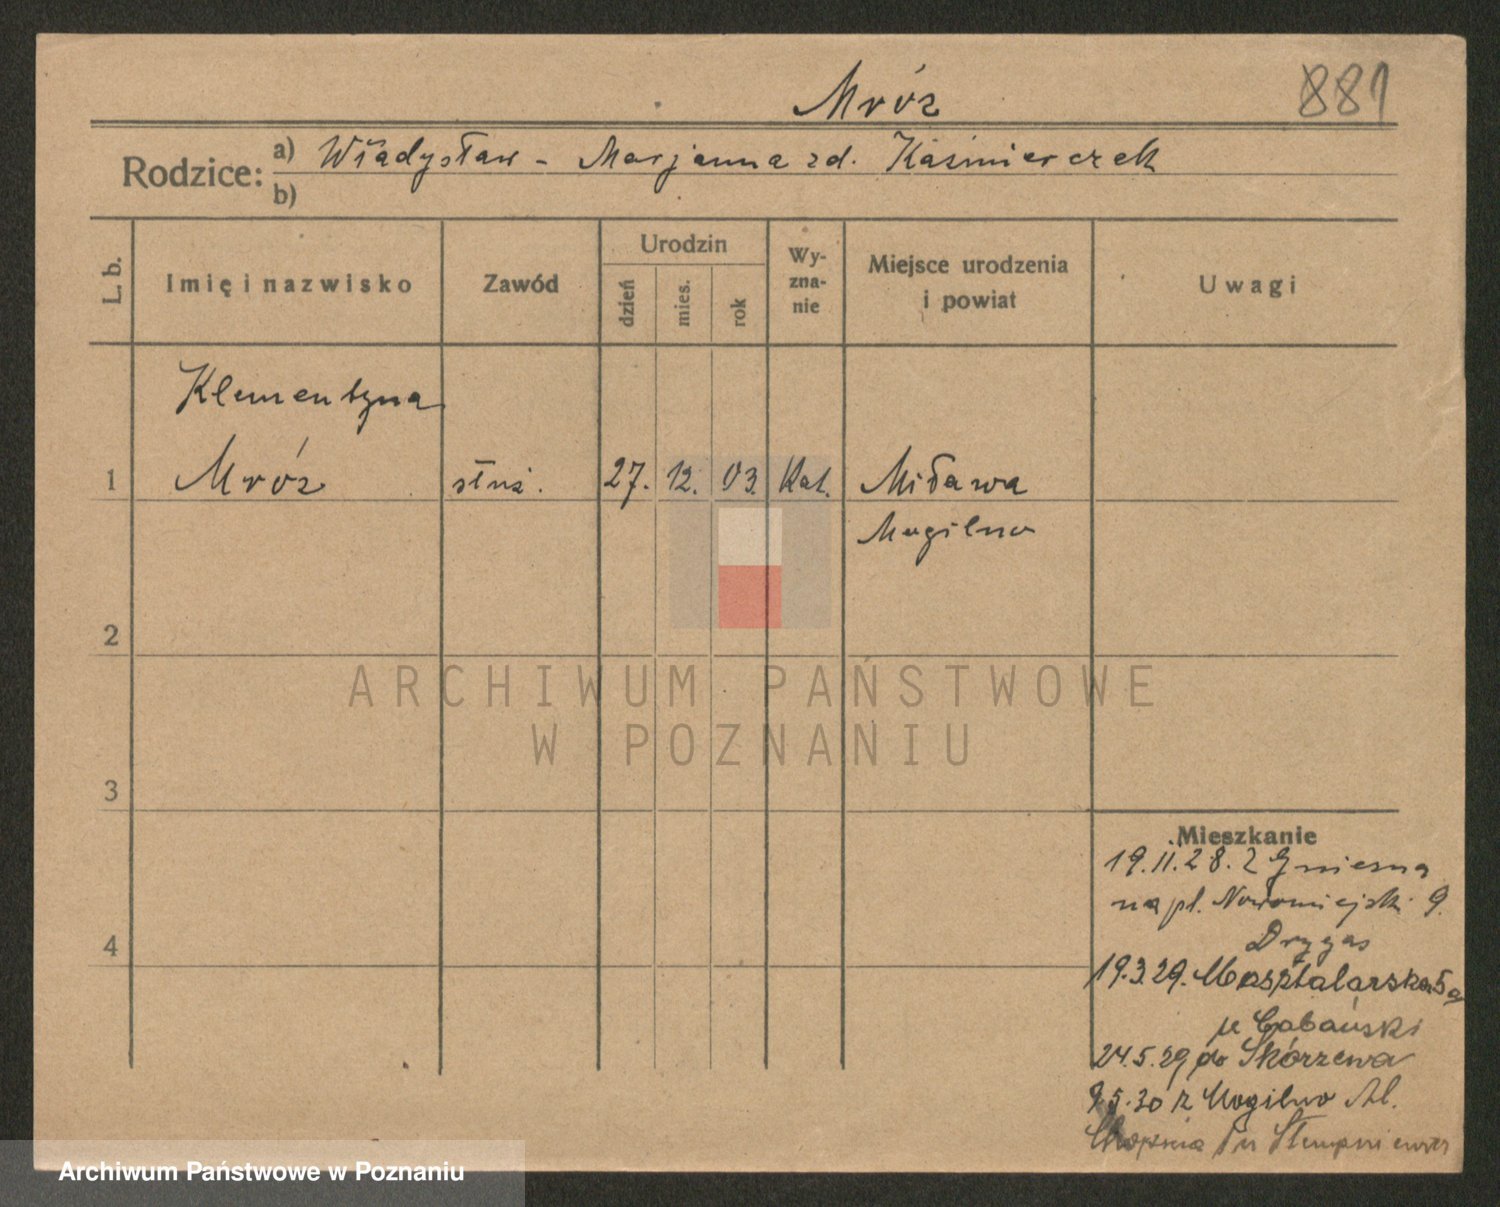 Mróz
881
Rodzice: a) Władysław - Marjanna zd. Kaźmierczak
b)
L. b. Imię i nazwisko Zawód Urodzin dzień mies. rok Wyznanie Miejsce urodzenia i powiat Uwagi
Klementyna
1 Mróz służ. 27. 12. 03. Kat. Miława
Mogilno
2
ARCHIWUM PAŃSTWOWE
W POZNANIU
3
Mieszkanie
19.11.28. z Gniezna
na pl. Nowomiejski 9.
Drygas
4
19.3.29. Masztalarska 5a
Gabański
24.5.29 do Skórzewa
9.5.30 z Mogilno Al.
Archiwum Państwowe w Poznaniu